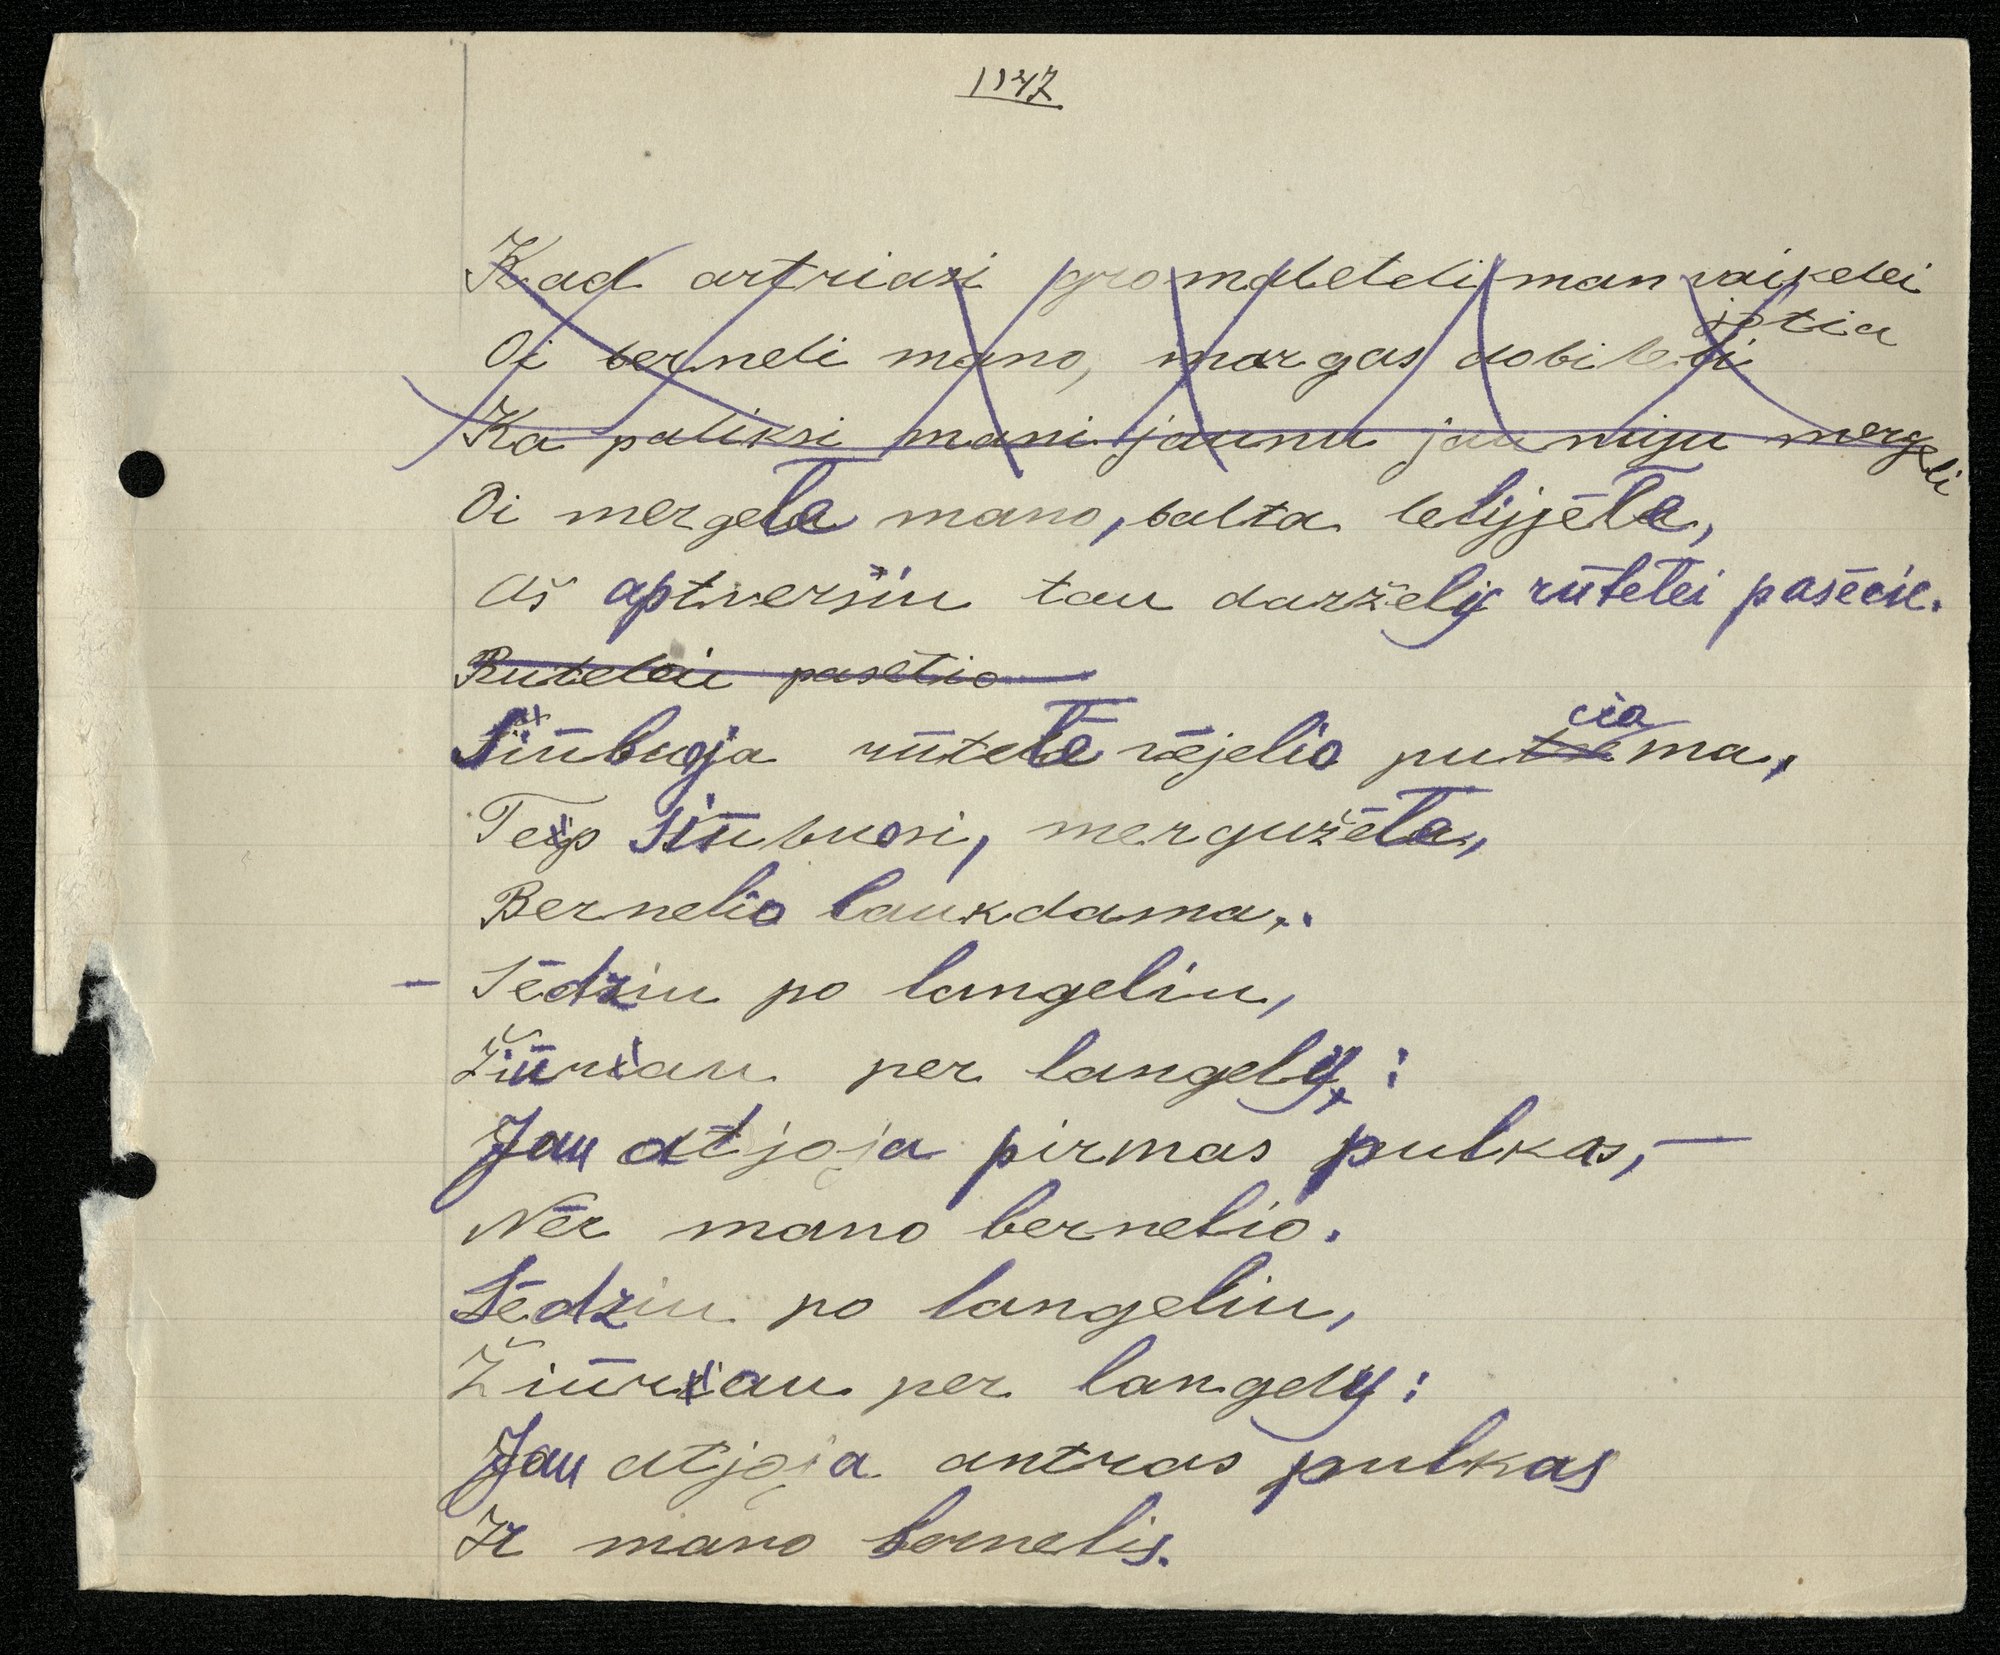 1147
Kad artriasi gromateteli man vaikelei
jotia
Oi berneli mano, margas dobileli
Ka paliksi mani jaunu jaunuju mergeli
Oi mergela mano, balta lelijėla,
Aš aptversiu tau darželį rūtelei pasėcie.
Rutelei pasėtio
Siūbuoja rūtelė vėjelio puciama,
Teip siūbuosi, mergužėla,
Bernelio laukdama.
– Sėdziu po langeliu,
Žiūrau per langelį:
Jau atjoja pirmas pulkas, –
Nėr mano bernelio.
Sėdziu po langeliu,
Žiūrau per langelį:
Jau atjoja antras pulkas
Ir mano bernelis.